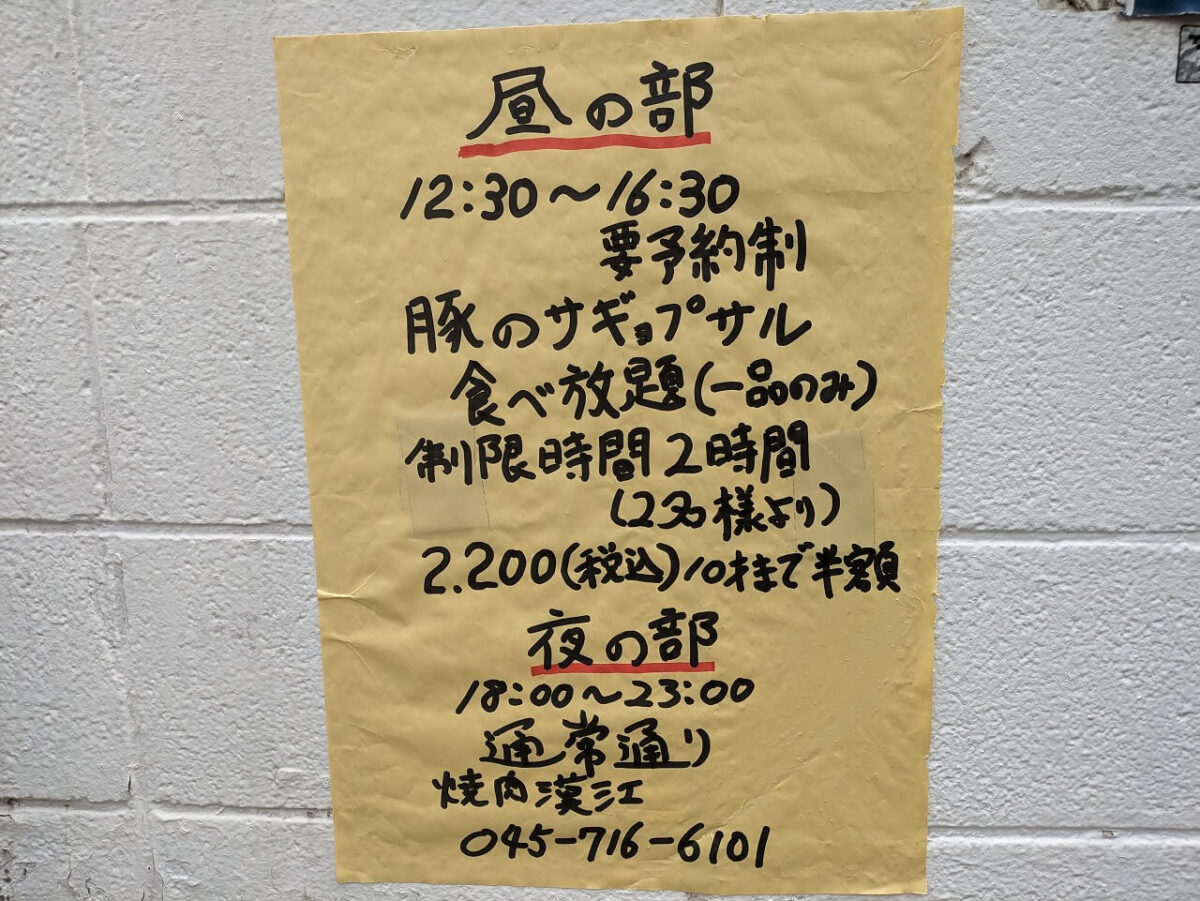 昼の部
12:30〜16:30
要予約制
豚のサギョプサル
食べ放題(一品のみ)
制限時間2時間
(2名様より)
2.200(税込)10才まで半額
夜の部
18:00〜23:00
通常通り
焼肉漢江
045-716-6101